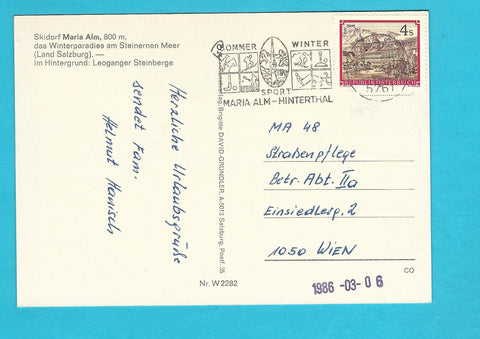 Skidorf Maria Alm, 800 m,
das Winterparadies am Steinernen Meer
(Land Salzburg). —
Im Hintergrund: Leoganger Steinberge
Herzliche Urlaubsgrüße
sendet Fam.
Helmut Hanisch
Brigitte DAVID-GRÜNDLER, A-5013 Salzburg, Postf. 35
Nr. W 2282
SOMMER WINTER
SPORT
MARIA ALM - HINTERTHAL
4 S
REPUBLIK ÖSTERREICH
5761
MA 48
Straßenpflege
Betr. Abt. IIa
Einsiedlerp. 2
1050 WIEN
CO
1986 -03- 06